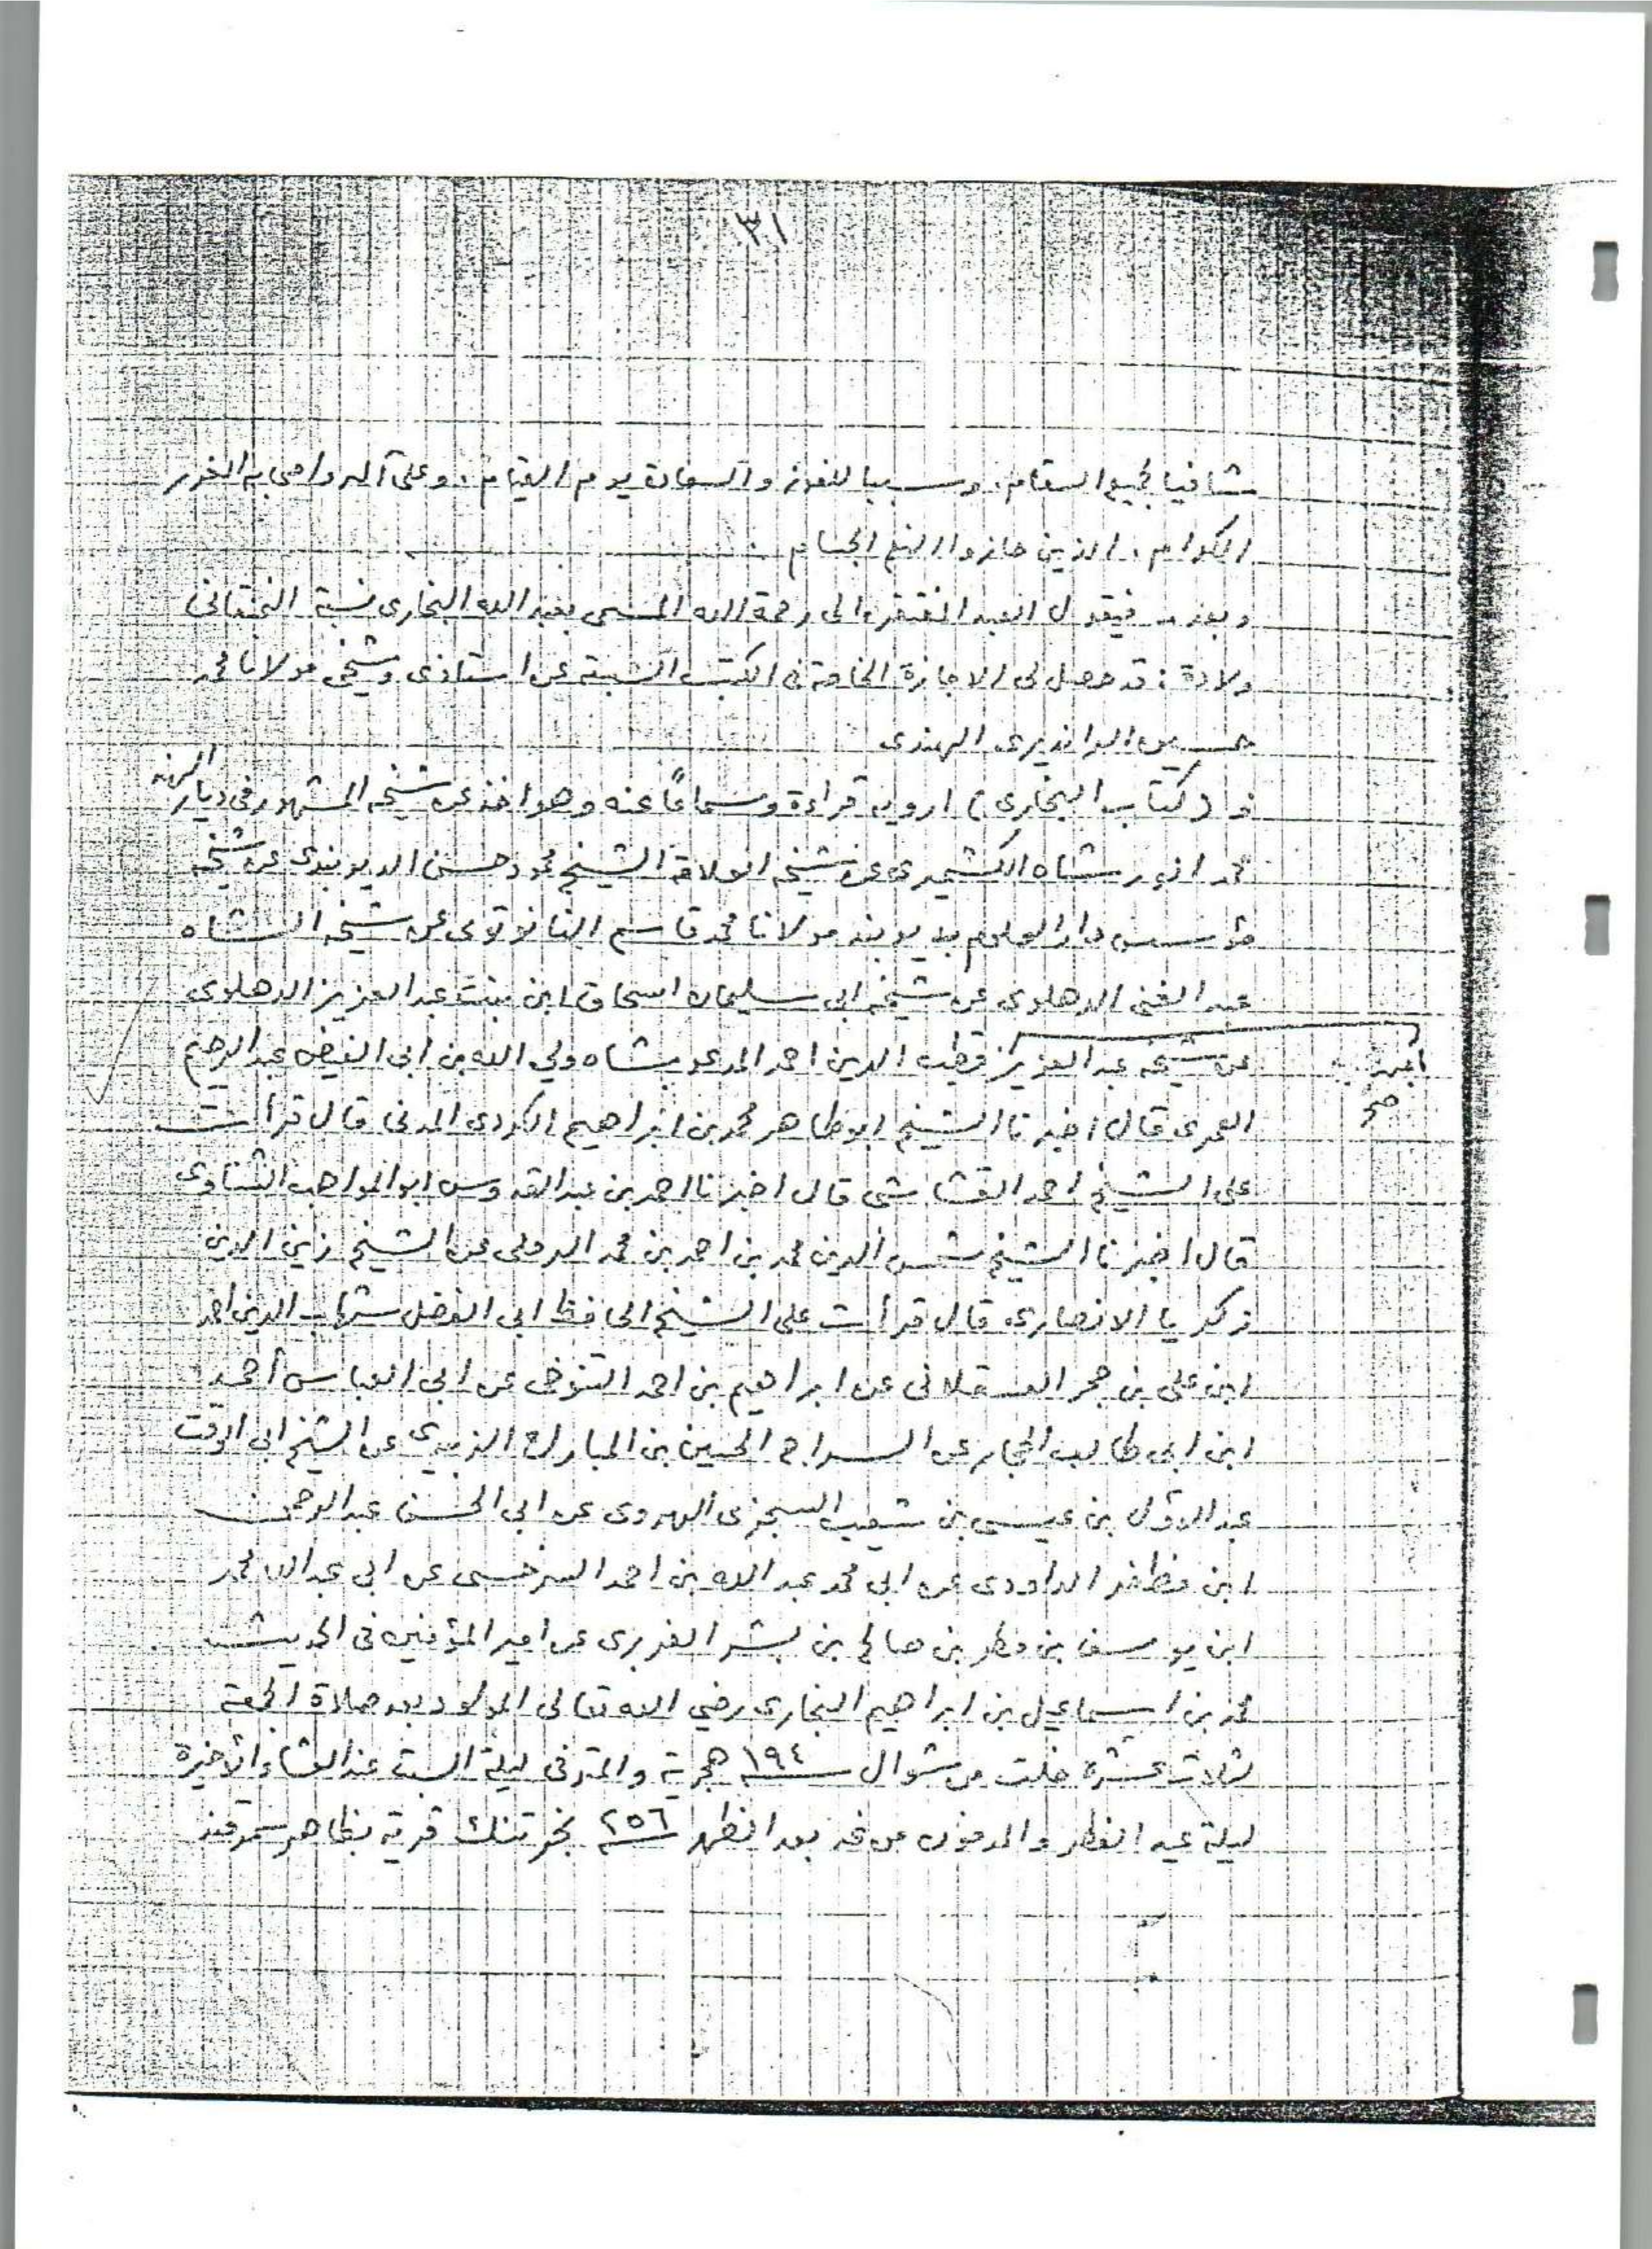 ٣١
شافيا لجميع السقام، وسببا للفوز والسعادة يوم القيام، وعلى آله واصحابه الغرر
الكرام، الذين حازوا النعم الجسام
وبعد فيقول العبد المفتقر الى رحمة الله المسمى بعبد الله البخارى نسبة
ولادة : قد حصل لى الاجازة الخاصة فى الكتب الستة عن استاذى وشيخى مولانا محمد
حسين الرانديرى الهندى
فـ (كتاب البخارى) ارويه قراءة وسماعًا عنه وهو اخذ عن شيخه المشهور فى ديار الهند
محمد انور شاه الكشميرى عن شيخه العلامة الشيخ محمود حسن الديوبندى عن شيخه
مؤسس دار العلوم بديوبند مولانا محمد قاسم النانوتوى عن شيخه الشاه
عبد الغنى الدهلوى عن شيخه ابى سليمان اسحاق ابن بنت عبد العزيز الدهلوى
عن شيخه عبد العزيز قطب الدين احمد المدعو بشاه ولي الله بن ابى الفيض عبد الرحيم
صح
العمرى قال اخبرنا الشيخ ابو طاهر محمد بن ابراهيم الكردى المدنى قال قرأت
على الشيخ احمد القشاشى قال اخبرنا احمد بن عبد القدوس ابو المواهب الشناوى
قال اخبرنا الشيخ شمس الدين محمد بن احمد بن محمد الرملى عن الشيخ زين الدين
زكريا الانصارى قال قرأت على الشيخ الحافظ ابى الفضل شهاب الدين احمد
ابن على بن حجر العسقلانى عن ابراهيم بن احمد التنوخى عن ابى العباس أحمد
ابن ابى طالب الحجار عن السراج الحسين بن المبارك الزبيدي عن الشيخ ابى الوقت
عبد الاوّل بن عيسى بن شعيب السجزى الهروى عن ابى الحسن عبد الرحمن
ابن مظفر الداودى عن ابى محمد عبد الله بن احمد السرخسى عن ابى عبد الله محمد
ابن يوسف بن مطر بن صالح بن بشر الفربرى عن امير المؤمنين فى الحديث
محمد بن اسماعيل بن ابراهيم البخارى رضي الله تعالى المولود بعد صلاة الجمعة
لثلاث عشرة خلت من شوال سنة ١٩٤ هجرية والمتوفى ليلة السبت عند العشاء الأخيرة
ليلة عيد الفطر والمدفون من غد بعد الظهر سنة ٢٥٦ بخرتنك قرية بظاهر سمرقند